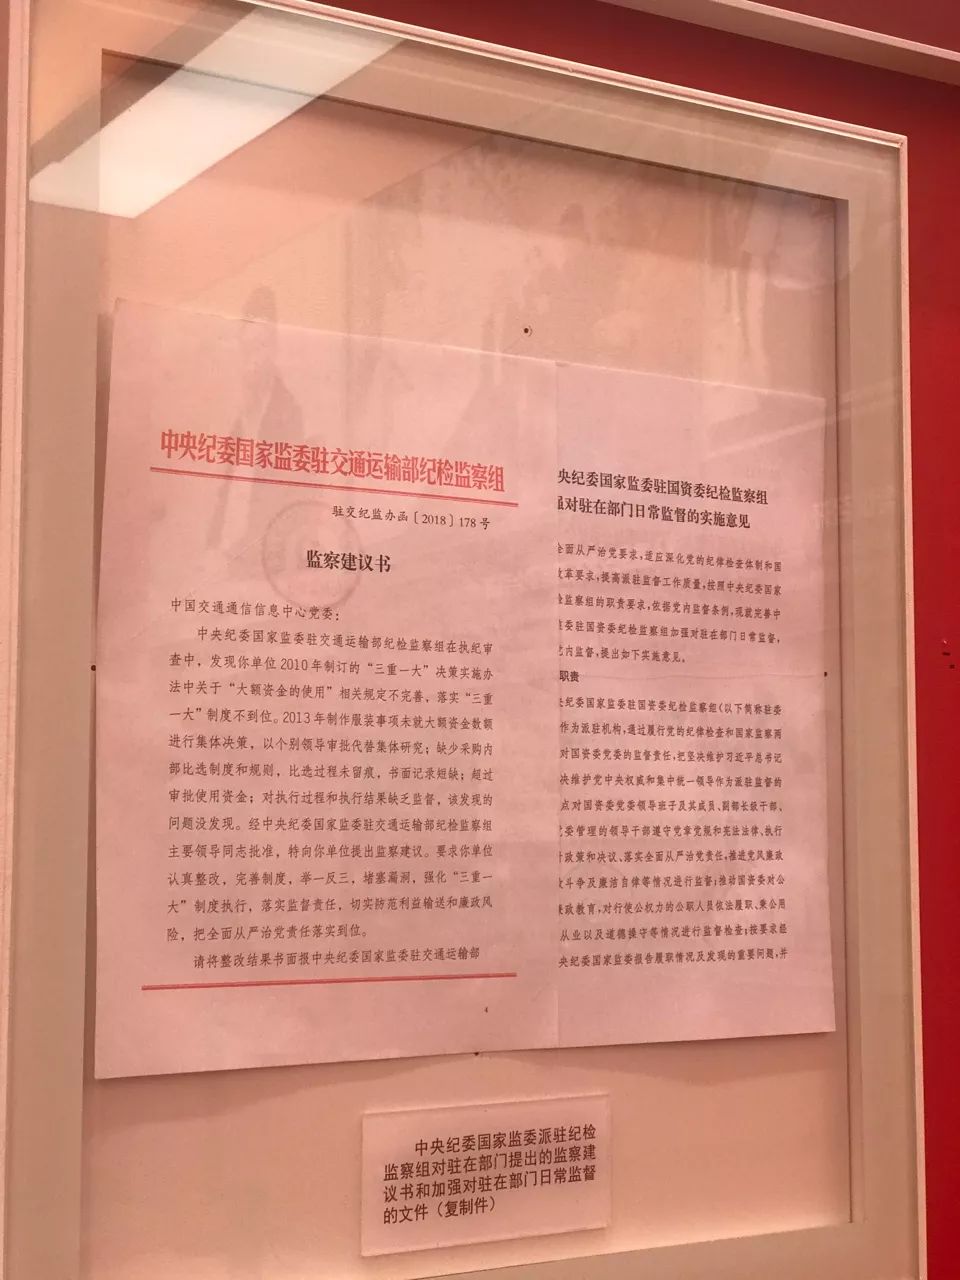 中央纪委国家监委驻交通运输部纪检监察组
驻交纪监办函〔2018〕178号
监察建议书
中国交通通信信息中心党委：
中央纪委国家监委驻交通运输部纪检监察组在执纪审
查中，发现你单位2010年制订的“三重一大”决策实施办
法中关于“大额资金的使用”相关规定不完善，落实“三重
一大”制度不到位。2013年制作服装事项未就大额资金数额
进行集体决策，以个别领导审批代替集体研究；缺少采购内
部比选制度和规则，比选过程未留痕，书面记录短缺；超过
审批使用资金；对执行过程和执行结果缺乏监督，该发现的
问题没发现。经中央纪委国家监委驻交通运输部纪检监察组
主要领导同志批准，特向你单位提出监察建议。要求你单位
认真整改，完善制度，举一反三，堵塞漏洞，强化“三重一
大”制度执行，落实监督责任，切实防范利益输送和廉政风
险，把全面从严治党责任落实到位。
请将整改结果书面报中央纪委国家监委驻交通运输部
4
央纪委国家监委驻国资委纪检监察组
强对驻在部门日常监督的实施意见
全面从严治党要求，适应深化党的纪律检查体制和国
改革要求，提高派驻监督工作质量，按照中央纪委国家
检监察组的职责要求，依据党内监督条例，现就完善中
监委驻国资委纪检监察组加强对驻在部门日常监督，
党内监督，提出如下实施意见。
职责
央纪委国家监委驻国资委纪检监察组（以下简称驻委
作为派驻机构，通过履行党的纪律检查和国家监察两
对国资委党委的监督责任，把坚决维护习近平总书记
决维护党中央权威和集中统一领导作为派驻监督的
点对国资委党委领导班子及其成员、副部长级干部、
党委管理的领导干部遵守党章党规和宪法法律、执行
政策和决议、落实全面从严治党责任，推进党风廉政
斗争及廉洁自律等情况进行监督；推动国资委对公
廉政教育，对行使公权力的公职人员依法履职、秉公用
从业以及道德操守等情况进行监督检查；按要求经
央纪委国家监委报告履职情况及发现的重要问题，并
中央纪委国家监委派驻纪检
监察组对驻在部门提出的监察建
议书和加强对驻在部门日常监督
的文件（复制件）